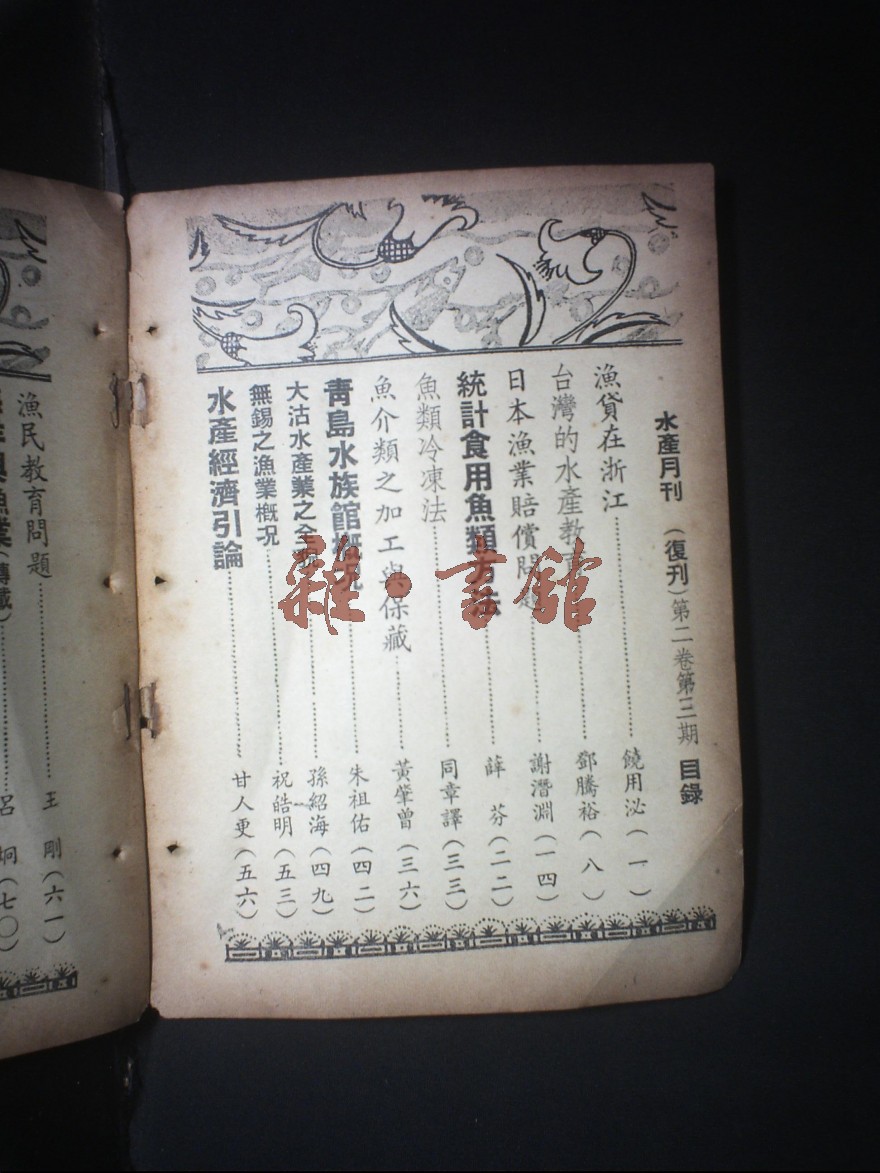 水產月刊 (復刊) 第二卷第三期 目錄
漁貸在浙江……饒用泌(一)
台灣的水產教育……鄧騰裕(八)
日本漁業賠償問題……謝潛淵(一四)
統計食用魚類方法……薛芬(二二)
魚類冷凍法……同章譯(三三)
魚介類之加工與保藏……黃肇曾(三六)
青島水族館概況……朱祖佑(四二)
大沽水產業之全貌……孫紹海(四九)
無錫之漁業概況……祝皓明(五三)
水產經濟引論……甘人更(五六)
漁民教育問題……王剛(六一)
與漁業(轉載)……呂炯(七〇)
雜·書館